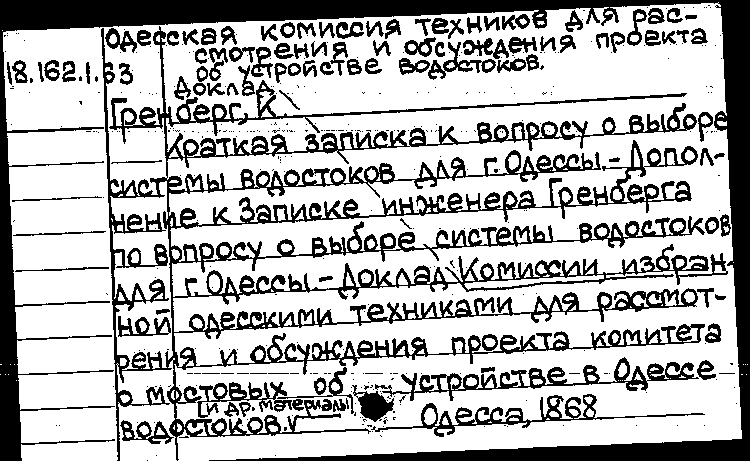 Одесская комиссия техников для рас-
смотрения и обсуждения проекта
18.162.1.63 об устройстве водостоков.
Доклад
Гренберг, К.
Краткая записка к вопросу о выборе
системы водостоков для г. Одессы. - Допол-
нение к Записке инженера Гренберга
по вопросу о выборе системы водостоков
для г. Одессы. - Доклад Комиссии, избран-
ной одесскими техниками для рассмот-
рения и обсуждения проекта комитета
о мостовых об устройстве в Одессе
[и др. материалы]
водостоков. V Одесса, 1868